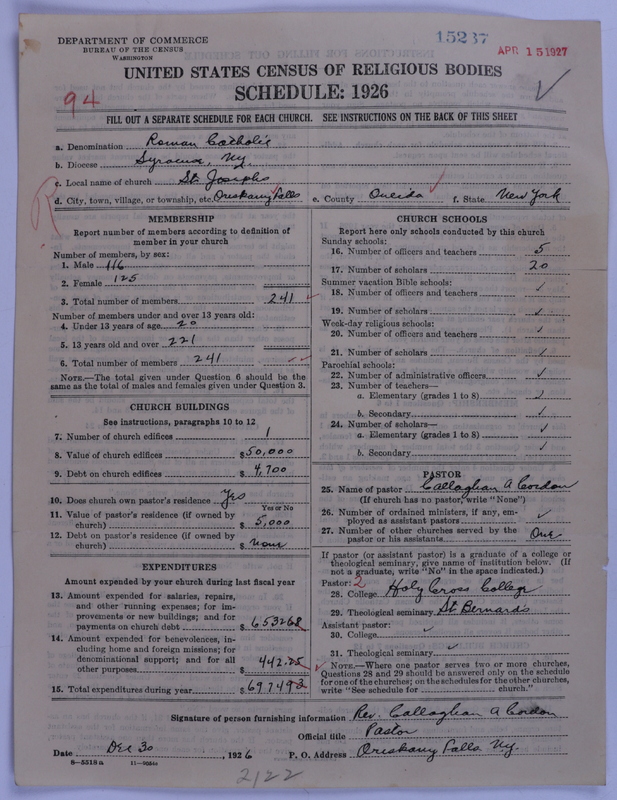 DEPARTMENT OF COMMERCE
BUREAU OF THE CENSUS
WASHINGTON
15237
APR 15 1927
UNITED STATES CENSUS OF RELIGIOUS BODIES
SCHEDULE: 1926
94
FILL OUT A SEPARATE SCHEDULE FOR EACH CHURCH. SEE INSTRUCTIONS ON THE BACK OF THIS SHEET
a. Denomination Roman Catholic
b. Diocese Syracuse, Ny.
c. Local name of church St. Josephs
d. City, town, village, or township, etc. Oriskany Falls e. County Oneida f. State New York
R
MEMBERSHIP
Report number of members according to definition of
member in your church
Number of members, by sex:
1. Male 116
2. Female 125
3. Total number of members 241
Number of members under and over 13 years old:
4. Under 13 years of age 20
5. 13 years old and over 221
6. Total number of members 241
NOTE.—The total given under Question 6 should be the
same as the total of males and females given under Question 3.
CHURCH BUILDINGS
See instructions, paragraphs 10 to 12
7. Number of church edifices 1
8. Value of church edifices $50,000
9. Debt on church edifices $4,700
10. Does church own pastor's residence Yes
Yes or No
11. Value of pastor's residence (if owned by
church) $5,000
12. Debt on pastor's residence (if owned by
church) $none
EXPENDITURES
Amount expended by your church during last fiscal year
13. Amount expended for salaries, repairs,
and other running expenses; for im-
provements or new buildings; and for
payments on church debt $653268
14. Amount expended for benevolences, in-
cluding home and foreign missions; for
denominational support; and for all
other purposes $442.25
15. Total expenditures during year $697493
CHURCH SCHOOLS
Report here only schools conducted by this church
Sunday schools:
16. Number of officers and teachers 5
17. Number of scholars 20
Summer vacation Bible schools:
18. Number of officers and teachers
19. Number of scholars
Week-day religious schools:
20. Number of officers and teachers
21. Number of scholars
Parochial schools:
22. Number of administrative officers
23. Number of teachers—
a. Elementary (grades 1 to 8)
b. Secondary
24. Number of scholars—
a. Elementary (grades 1 to 8)
b. Secondary
PASTOR
25. Name of pastor Callaghan A Cordon
(If church has no pastor, write "None")
26. Number of ordained ministers, if any, em-
ployed as assistant pastors
27. Number of other churches served by the
pastor or his assistants One
If pastor (or assistant pastor) is a graduate of a college or
theological seminary, give name of institution below. (If
not a graduate, write "No" in the space indicated.)
Pastor: 2
28. College Holy Cross College
29. Theological seminary St Bernards
Assistant pastor:
30. College
31. Theological seminary
NOTE.—Where one pastor serves two or more churches,
Questions 28 and 29 should be answered only on the schedule
for one of the churches; on the schedules for the other churches,
write "See schedule for church."
Signature of person furnishing information Rev. Callaghan A Cordon
Official title Pastor
Date Dec 30, 1926 P. O. Address Oriskany Falls Ny.
8-5518 a
2122